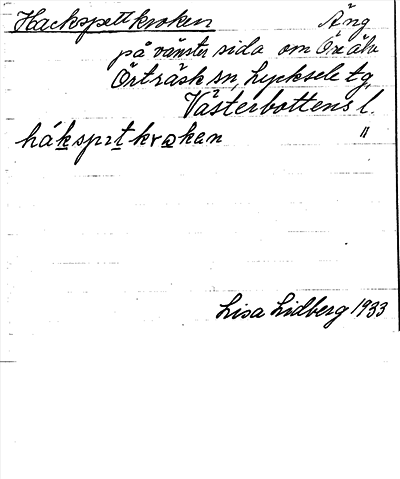 Hackspettkroken Äng
på vänster sida om Öre älv
Örträsk sn, Lycksele tg,
Västerbottens l.
hákspıtkrokan "
Lisa Lidberg 1933